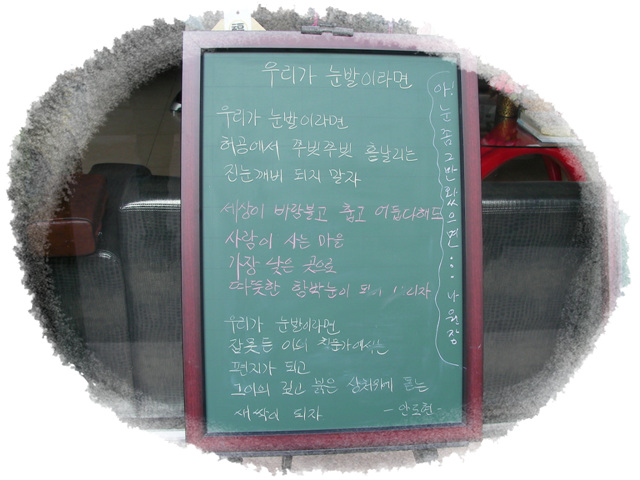 우리가 눈발이라면
우리가 눈발이라면
허공에서 쭈빗쭈빗 흩날리는
진눈깨비 되지 말자
세상이 바람불고 춥고 어둡다해도
사람이 사는 마을
가장 낮은 곳으로
따뜻한 함박눈이 되어
우리가 눈발이라면
잠못든 이의 창문가에서는
편지가 되고
그이의 깊고 붉은 상처위에 돋는
새싹이 되자
-안도현-
아! 눈 좀 그만 왔으면... 나 원장